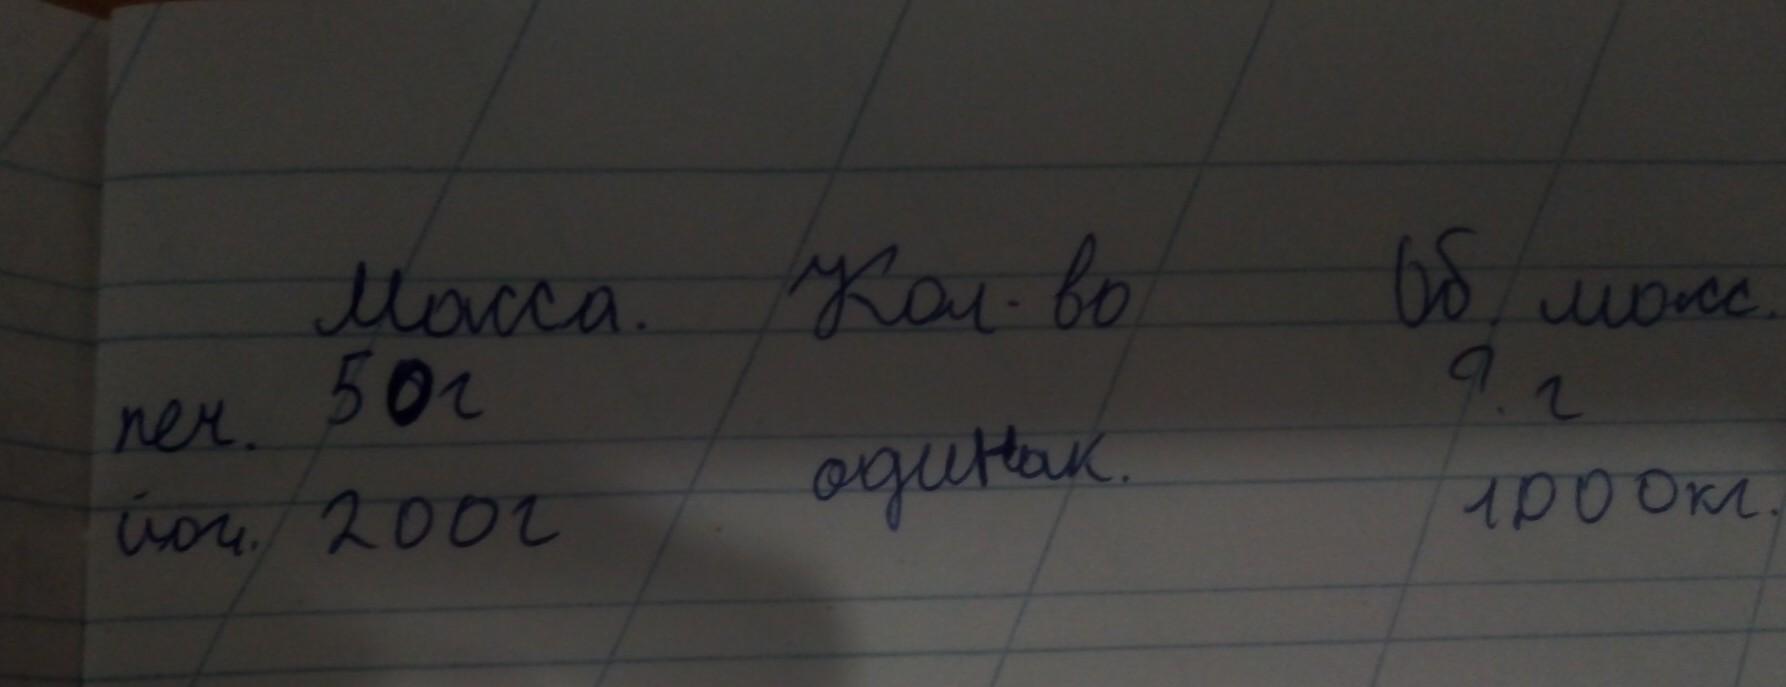 Масса. Кол-во Об. масс.
печ. 50г ? г
одинак.
йог. 200г 1000кг.